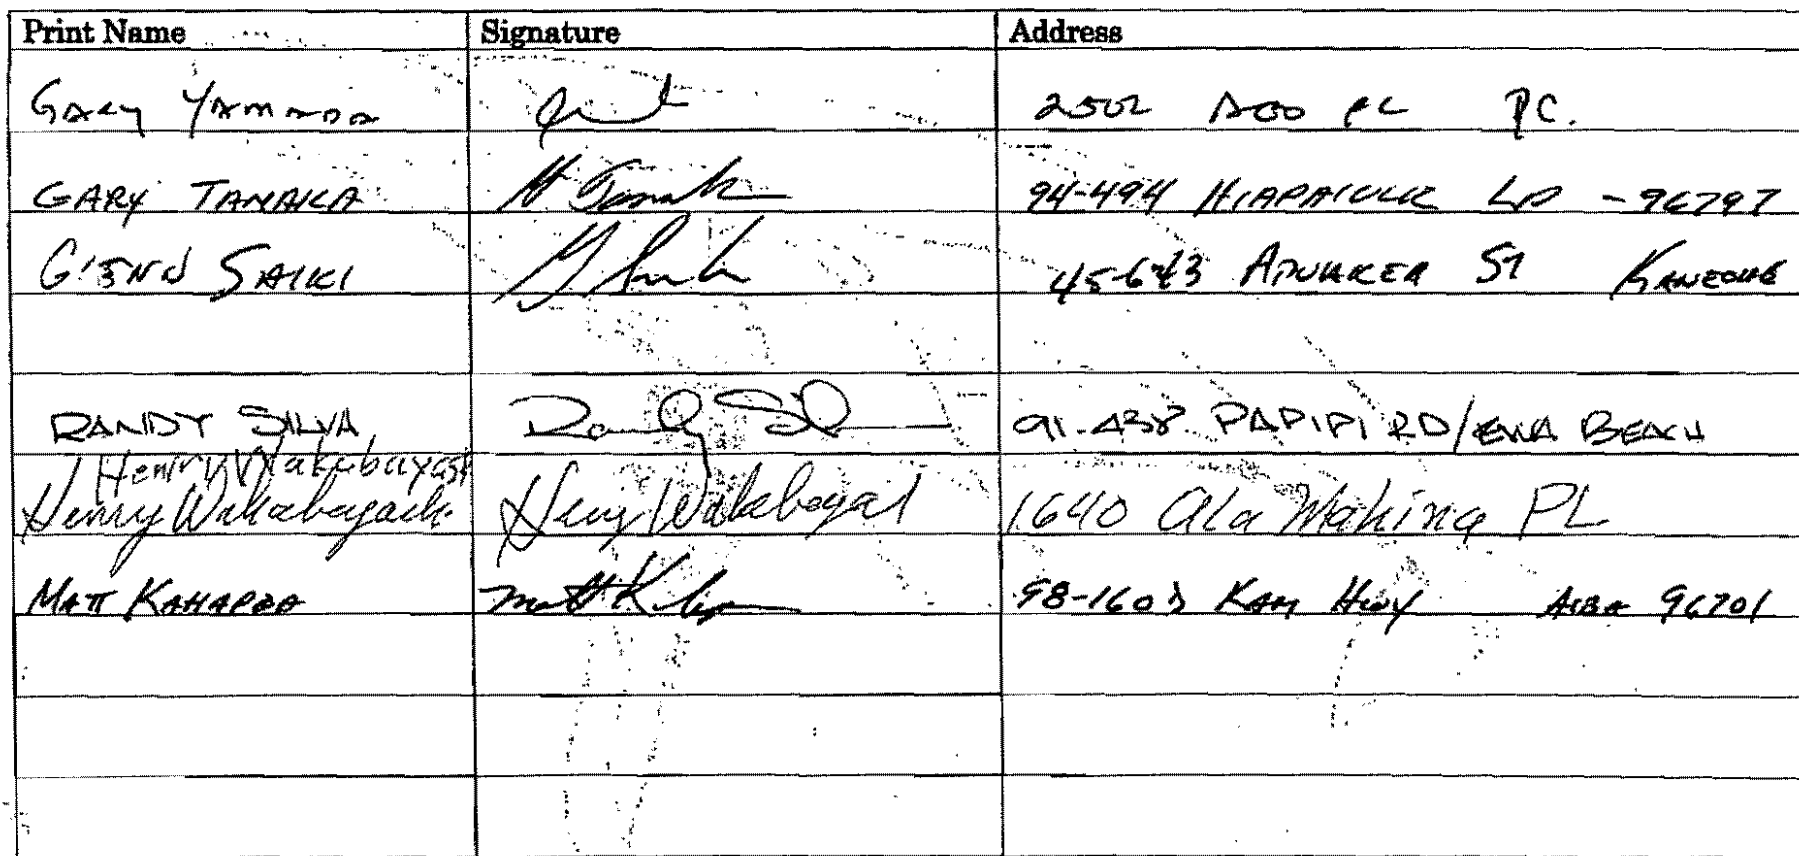 Print Name Signature Address
GARY YAMADA 2502 PL P.C.
GARY TANAKA Tanak 94-494 LP - 96797
GLENN SAIKI 45-643 ST KANEOHE
RANDY SILVA Randy 91-438 PAPIPI RD/EWA BEACH
Henry Wakabayashi
Henry Wakabayashi Henry 1640 Ala Mahina PL
MATT Matt K 98-1603 KAM HWY AIEA 96701